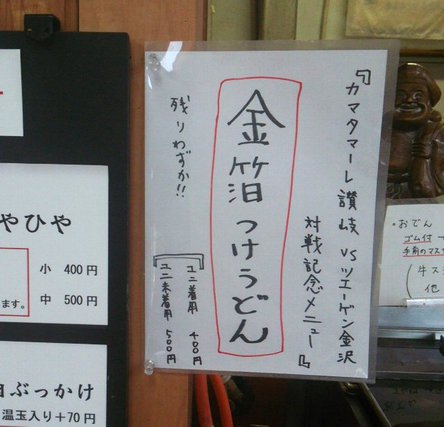 『カマタマーレ讃岐 VS ツエーゲン金沢
対戦記念メニュー』
金箔つけうどん
残りわずか!!
ユニ着用 400円
ユニ未着用 500円
やひや
小 400円
中 500円
ます。
ぶっかけ
温玉入り+70円
・おでん
ゴム付
牛ス
他